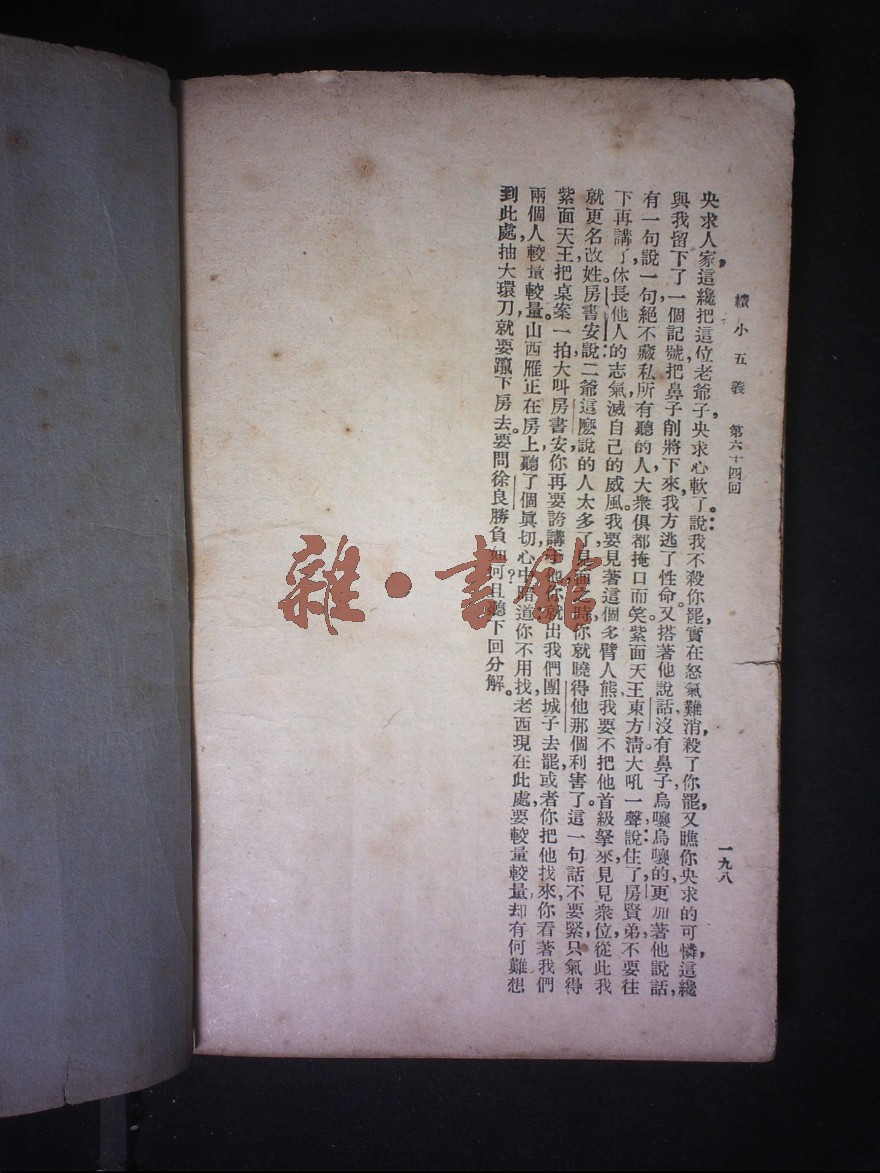 續小五義 第六十四回 一九八
央求人家，這纔把這位老爺子央求心軟了。說：我不殺你罷，實在怒氣難消，殺了你罷，又瞧你央求的可憐，這纔
與我留下了一個記號，把鼻子削將下來，我方逃了性命。又搭著他說話沒有鼻子，烏嚷烏嚷的，更加著他說話，
有一句說一句，絕不藏私，所有聽的人大衆俱都掩口而笑。紫面天王東方清大吼一聲說：住了，房賢弟，不要往
下再講了，休長他人的志氣，滅自己的威風。我要見著這個多臂人熊，我要不把他首級拏來見見衆位，從此我
就更名改姓。房書安說：二爺，這麽說的人太多了，見面之時，你就曉得他那個利害了。這一句話不要緊，只氣得
紫面天王把桌案一拍，大叫房書安，你再要誇講他，你就出我們團城子去罷，或者你把他找來，你看著我們
兩個人較量較量。山西雁正在房上，聽了個眞切，心中暗道：你不用找，老西現在此處，要較量較量，却有何難，想
到此處，抽大環刀，就要躥下房去。要問徐良勝負如何？且聽下回分解。
雜·書館